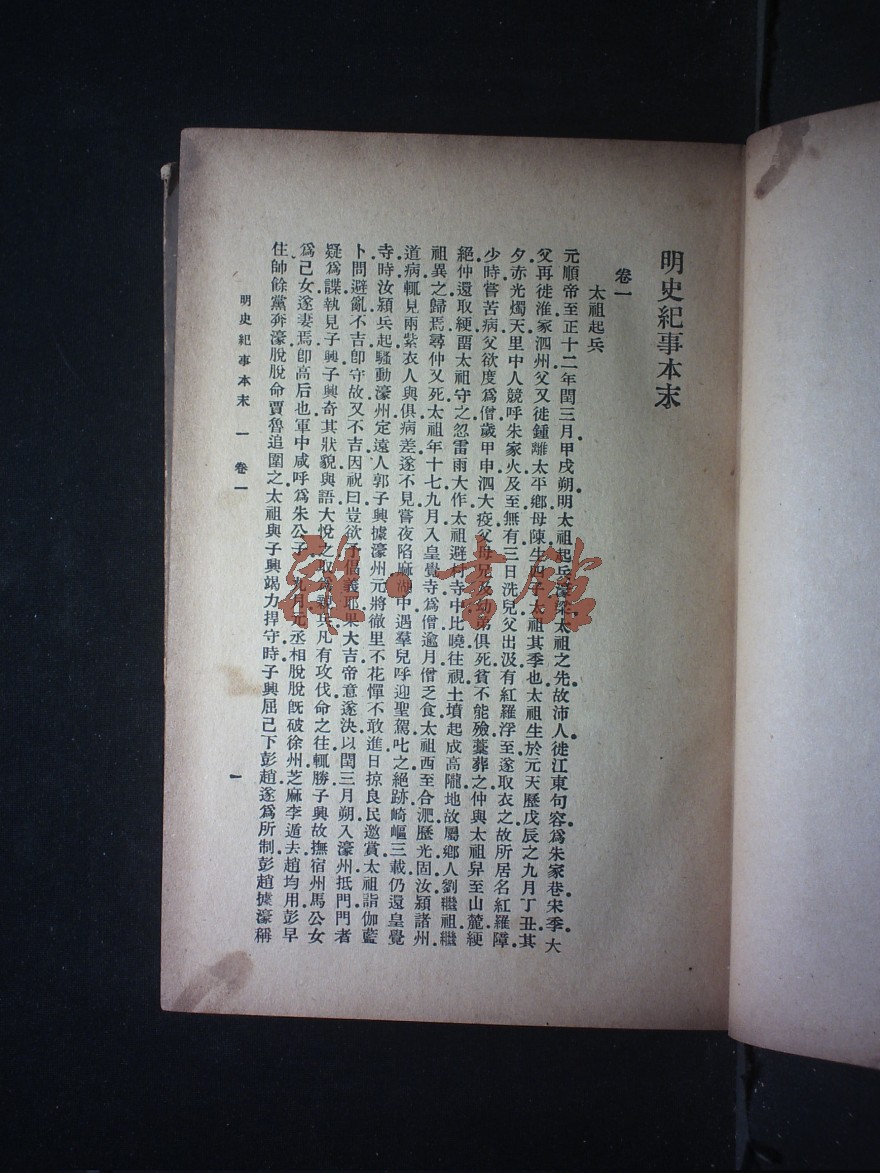 明史紀事本末
卷一
太祖起兵
元順帝至正十二年閏三月甲戌朔明太祖起兵濠梁太祖之先故沛人徙江東句容爲朱家巷宋季大
父再徙淮家泗州父又徙鍾離太平鄉母陳生四子太祖其季也太祖生於元天歷戊辰之九月丁丑其
夕赤光燭天里中人競呼朱家火及至無有三日洗兒父出汲有紅羅浮至遂取衣之故所居名紅羅障
少時嘗苦病父欲度爲僧歲甲申泗大疫父母兄及幼弟俱死貧不能殮藁葬之仲與太祖舁至山麓綆
絕仲還取綆畱太祖守之忽雷雨大作太祖避村寺中比曉往視土墳起成高隴地故屬鄉人劉繼祖繼
祖異之歸焉尋仲又死太祖年十七九月入皇覺寺爲僧逾月僧乏食太祖西至合淝歷光固汝潁諸州
道病輒見兩紫衣人與俱病差遂不見嘗夜陷麻湖中遇羣兒呼迎聖駕叱之絕跡崎嶇三載仍還皇覺
寺時汝潁兵起騷動濠州定遠人郭子興據濠州元將徹里不花憚不敢進日掠良民邀賞太祖詣伽藍
卜問避亂不吉卽守故又不吉因祝曰豈欲予倡義耶果大吉帝意遂決以閏三月朔入濠州抵門門者
疑爲諜執見子興子興奇其狀貌與語大悅之取爲親兵凡有攻伐命之往輒勝子興故撫宿州馬公女
爲己女遂妻焉卽高后也軍中咸呼爲朱公子九月元丞相脫脫旣破徐州芝麻李遁去趙均用彭早
住帥餘黨奔濠脫脫命賈魯追圍之太祖與子興竭力捍守時子興屈己下彭趙遂爲所制彭趙據濠稱
明史紀事本末 一 卷一
一
雜·書館